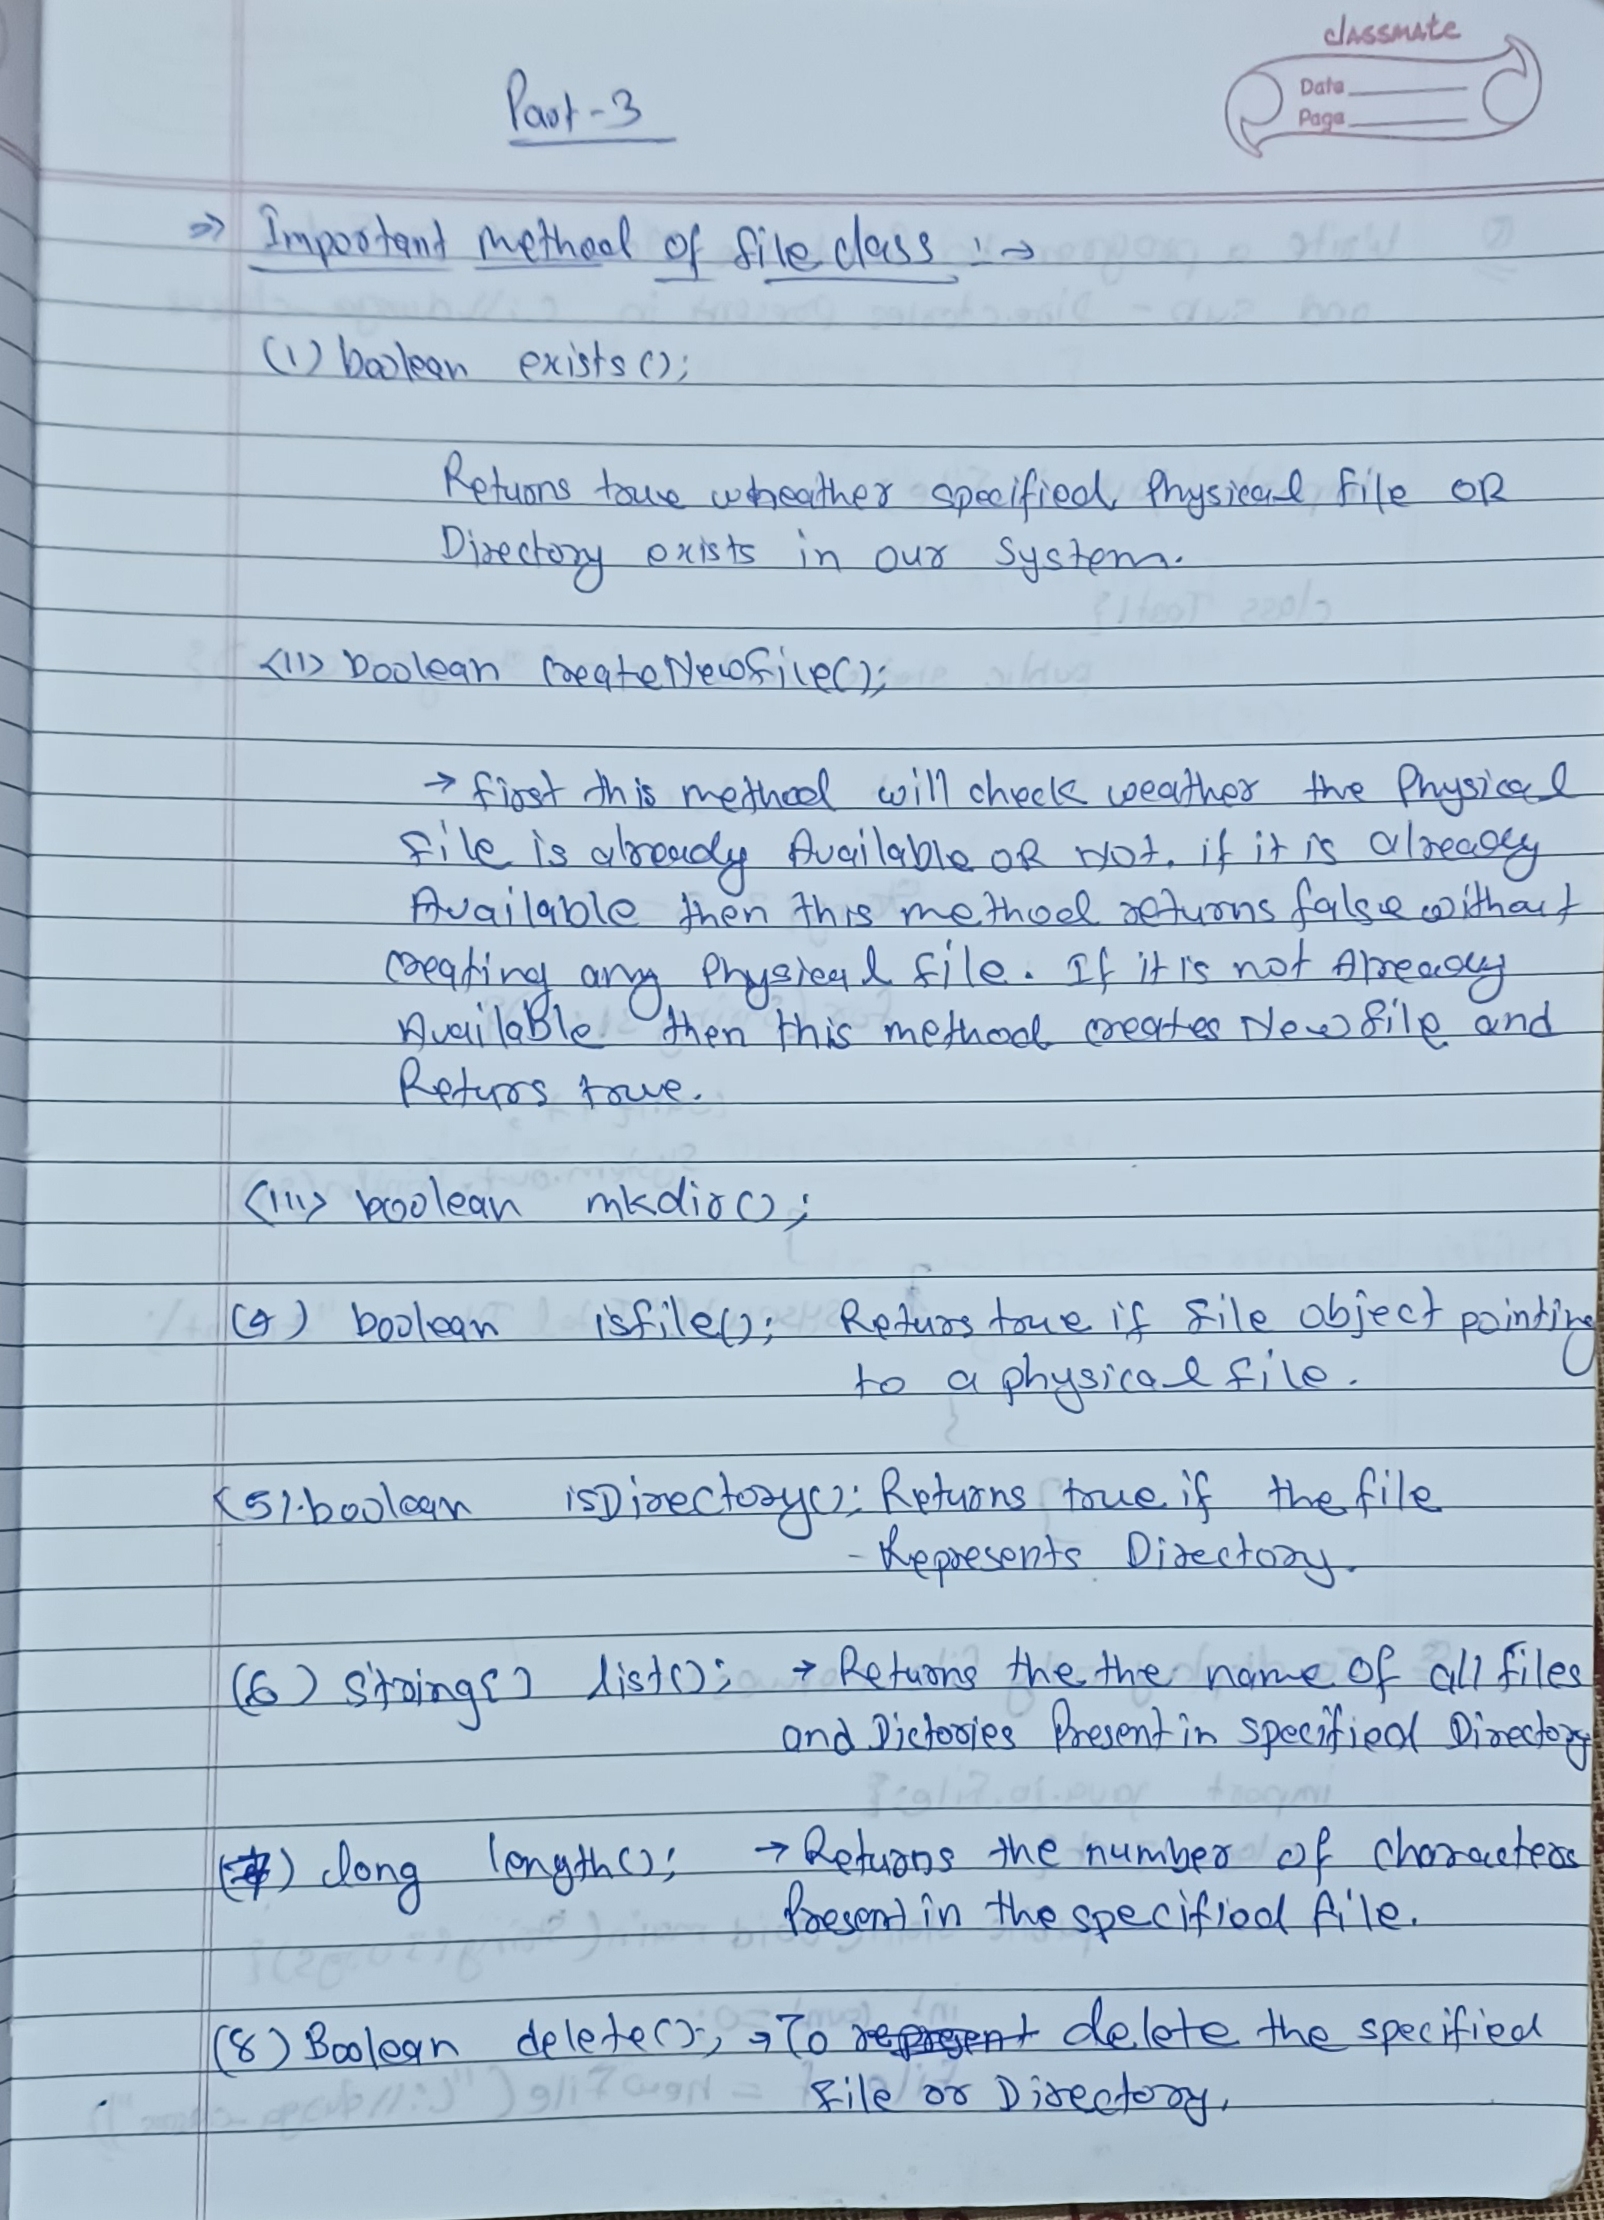 classmate
Date
Page
Part-3
⇒ Important method of file class :→
(1) boolean exists();
Returns true wheather specified Physical file OR
Directory exists in our system.
<11> boolean createNewfile();
→ first this method will check weather the Physical
file is already Available OR Not. if it is already
Available then this method returns false without
creating any Physical file. If it is not Already
Available then this method creates New file and
Returs true.
<111> boolean mkdir();
(4) boolean isfile(); Returs true if file object pointing
to a physical file.
(5). boolean isDirectory(); Returns true if the file
- Represents Directory.
(6) String[] list(); → Returns the the name of all files
and Dictories Present in specified Directory
(7) long length(); → Returns the number of characters
Present in the specified file.
(8) Boolean delete(); → To represent delete the specified
file or Directory.